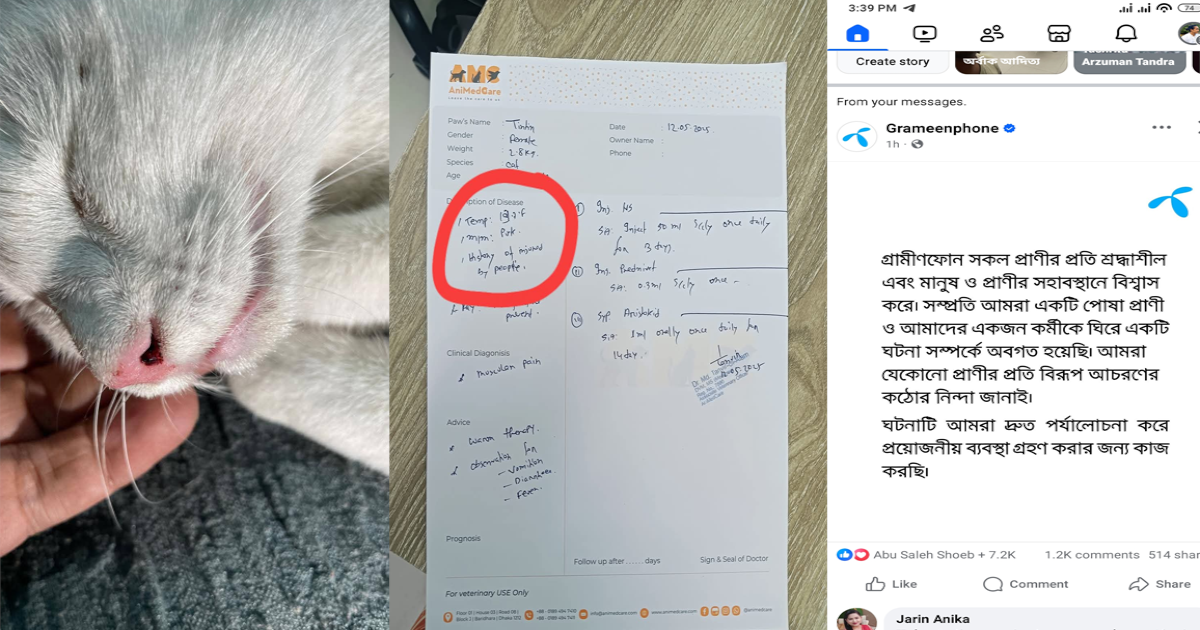 AMC
AniMedCare
Paw's Name : Tintin
Gender : female
Weight : 2.8 kg.
Species : cat
Age
Date : 12.05.2025.
Owner Name :
Phone :
Description of Disease
Temp:
History of injured
by people.
Clinical Diagnosis
muscular pain
Advice
warm therapy.
observation for
- vomition
- Diarrhoea.
- Fever.
Prognosis
Inj. NS
SA: Inject 50 ml S/C/ly once daily
for 3 days.
SA: 0.3ml S/C/ly once -
1ml orally once daily for
14 day.
Follow up after ...... days
Sign & Seal of Doctor
For veterinary USE Only
info@animedcare.com
www.animedcare.com
@animedcare
3:39 PM
74
Create story
অর্বাক আদিত্য
Arzuman Tandra
From your messages.
Grameenphone
1h
গ্রামীণফোন সকল প্রাণীর প্রতি শ্রদ্ধাশীল
এবং মানুষ ও প্রাণীর সহাবস্থানে বিশ্বাস
করে। সম্প্রতি আমরা একটি পোষা প্রাণী
ও আমাদের একজন কর্মীকে ঘিরে একটি
ঘটনা সম্পর্কে অবগত হয়েছি। আমরা
যেকোনো প্রাণীর প্রতি বিরূপ আচরণের
কঠোর নিন্দা জানাই।
ঘটনাটি আমরা দ্রুত পর্যালোচনা করে
প্রয়োজনীয় ব্যবস্থা গ্রহণ করার জন্য কাজ
করছি।
Abu Saleh Shoeb + 7.2K
1.2K comments 514 shar
Like
Comment
Share
Jarin Anika